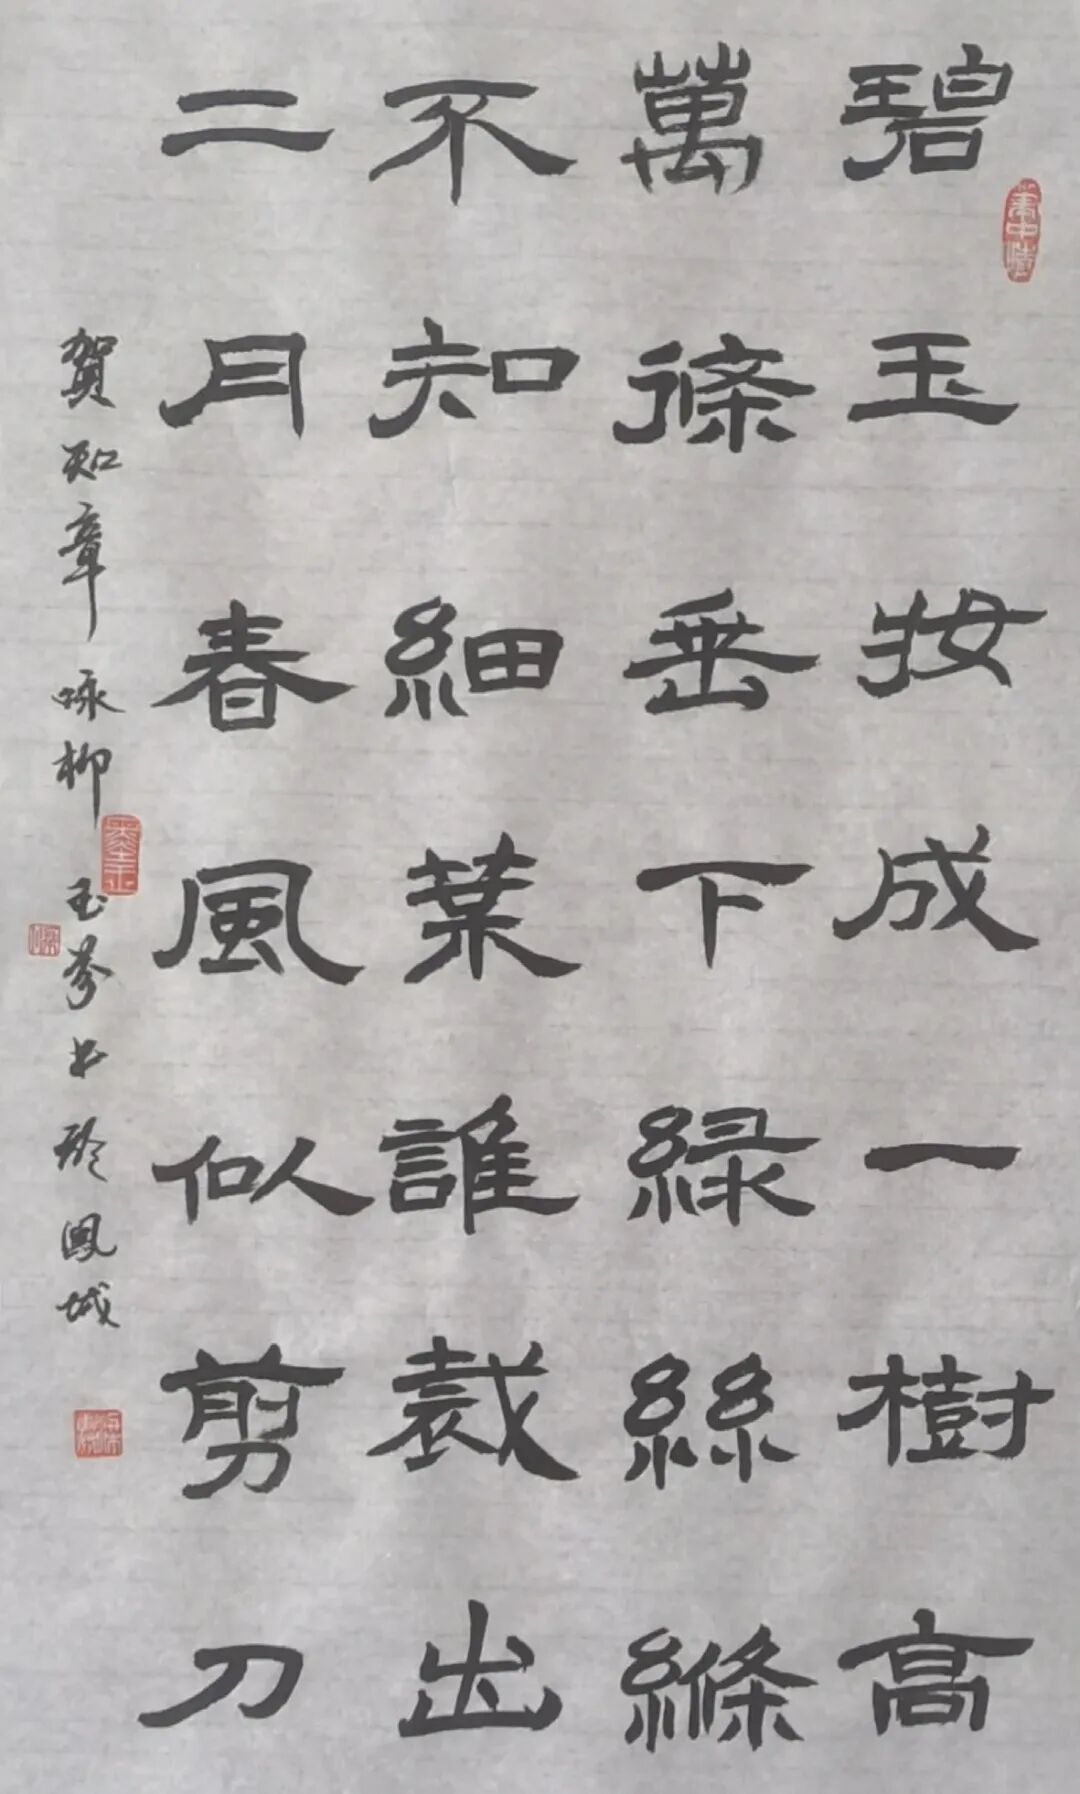 碧玉妝成一樹高
萬條垂下綠絲絛
不知細葉誰裁出
二月春風似剪刀
賀知章咏柳 玉芬書於鳳城